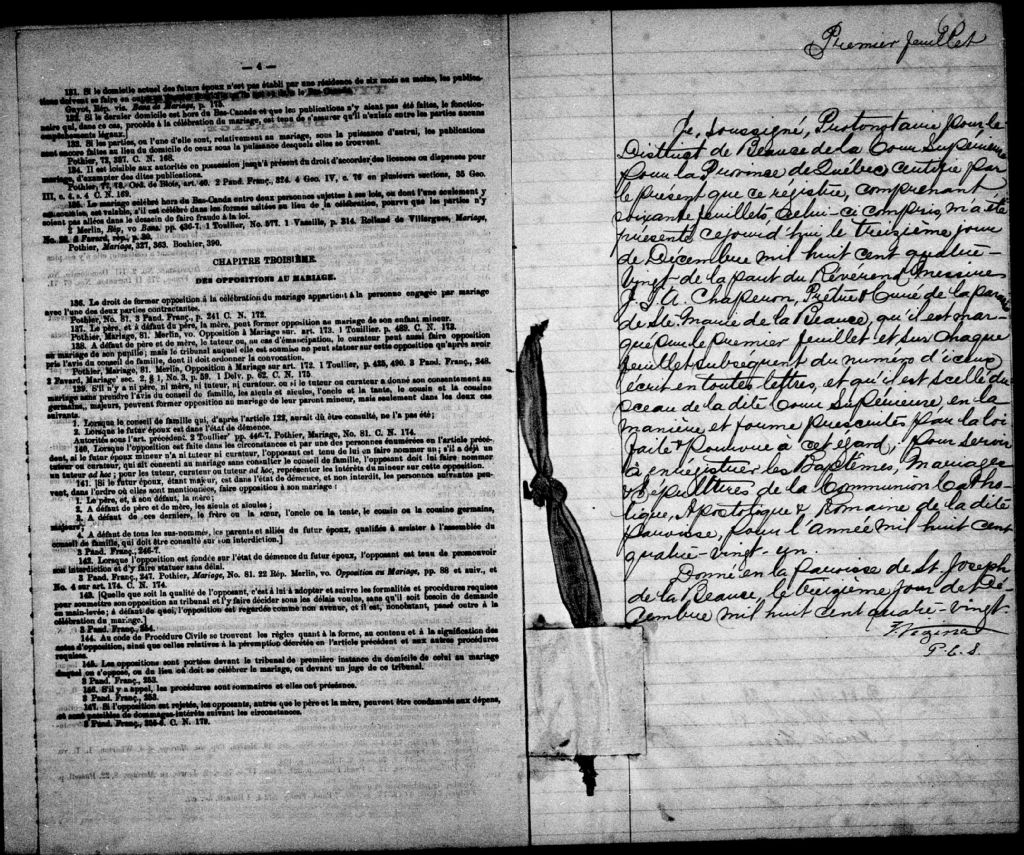 — 4 —
131. Si le domicile actuel des futurs époux n'est pas établi par une résidence de six mois au moins, les publica-
tions doivent se faire en outre
Guyot, Rép. vis. Bans de Mariage, p. 175.
132. Si le dernier domicile est hors du Bas-Canada et que les publications n'y aient pas été faites, le fonction-
naire qui, dans ce cas, procède à la célébration du mariage, est tenu de s'assurer qu'il n'existe entre les parties aucuns
empêchements légaux.]
133. Si les parties, ou l'une d'elle sont, relativement au mariage, sous la puissance d'autrui, les publications
sont encore faites au lieu du domicile de ceux sous la puissance desquels elles se trouvent.
Pothier, 73, 327. C. N. 168.
134. Il est loisible aux autorités en possession jusqu'à présent du droit d'accorder des licences ou dispenses pour
mariage, d'exempter des dites publications.
Pothier, 77, 78. Ord. de Blois, art. 40. 2 Pand. Franç., 324. 4 Geo. IV, c. 76 en plusieurs sections, 35 Geo.
III, c. 4, s. 4 C. N. 169.
135. Le mariage célébré hors du Bas-Canada entre deux personnes sujettes à ses lois, ou dont l'une seulement y
est soumise, est valable, s'il est célébré dans les formes usitées au lieu de la célébration, pourvu que les parties n'y
soient pas allées dans le dessein de faire fraude à la loi.
2 Merlin, Rép, vo Bans. pp. 436-7. 1 Toullier, No. 577. 1 Vazeille, p. 214. Rolland de Villargues, Mariage,
No. 3 Favard, rép., p. 39.
Pothier, Mariage, 327, 363. Bouhier, 390.
CHAPITRE TROISIÈME.
DES OPPOSITIONS AU MARIAGE.
136. Le droit de former opposition à la célébration du mariage appartient à la personne engagée par mariage
avec l'une des deux parties contractantes.
Pothier, No. 81. 3 Pand. Franç., p. 241 C. N. 172.
137. Le père, et à défaut du père, la mère, peut former opposition au mariage de son enfant mineur.
Pothier, Mariage, 81. Merlin, vo. Opposition à Mariage sur. art. 173. 1 Touillier, p. 489. C. N. 173.
138. A défaut de père et de mère, le tuteur ou, au cas d'émancipation, le curateur peut aussi faire opposition
au mariage de son pupille; mais le tribunal auquel elle est soumise ne peut statuer sur cette opposition qu'après avoir
pris l'avis du conseil de famille, dont il doit ordonner la convocation.
Pothier, Mariage, 81. Merlin, Opposition à Mariage sur art. 173. 1 Toullier, p. 488, 490. 3 Pand. Franç., 248.
2 Favard, Mariage sec. 2. § 1, No. 3, p. 59. 1 Delv. p. 62. C. N. 175
139. S'il n'y a ni père, ni mère, ni tuteur, ni curateur, ou si le tuteur ou curateur a donné son consentement au
mariage sans prendre l'avis du conseil de famille, les aïeuls et aïeules, l'oncle et la tante, le cousin et la cousine
germains, majeurs, peuvent former opposition au mariage de leur parent mineur, mais seulement dans les deux cas
suivants.
1. Lorsque le conseil de famille qui, d'après l'article 122, aurait dû être consulté, ne l'a pas été;
2. Lorsque le futur époux est dans l'état de démence.
Autorités sous l'art. précédent. 2 Toullier pp. 446-7. Pothier, Mariage, No. 81. C. N. 174.
140. Lorsque l'opposition est faite dans les circonstances et par une des personnes énumérées en l'article précé-
dent, si le futur époux mineur n'a ni tuteur ni curateur, l'opposant est tenu de lui en faire nommer un; s'il a déjà un
tuteur ou curateur, qui ait consenti au mariage sans consulter le conseil de famille, l'opposant doit lui faire nommer
un tuteur ad hoc; pour les tuteur, curateur ou tuteur ad hoc, représenter les intérêts du mineur sur cette opposition.
141. [Si le futur époux, étant majeur, est dans l'état de démence, et non interdit, les personnes suivantes peu-
vent, dans l'ordre où elles sont mentionnées, faire opposition à son mariage:
1. Le père, et, à son défaut, la mère;
2. A défaut de père et de mère, les aïeuls et aïeules;
3. A défaut de ces derniers, le frère ou la sœur, l'oncle ou la tante, le cousin ou la cousine germains,
majeurs;
4. A défaut de tous les sus-nommés, les parents et alliés du futur époux, qualifiés à assister à l'assemblée du
conseil de famille, qui doit être consulté sur son interdiction.]
3 Pand. Franç., 246-7.
142. Lorsque l'opposition est fondée sur l'état de démence du futur époux, l'opposant est tenu de promouvoir
son interdiction et d'y faire statuer sans délai.
3 Pand. Franç., 247. Pothier, Mariage, No. 81. 22 Rép. Merlin, vo. Opposition au Mariage, pp. 88 et suiv., et
No. 4 sur art. 174. C. N. 174.
143. [Quelque soit la qualité de l'opposant, c'est à lui à adopter et suivre les formalités et procédures requises
pour soumettre son opposition au tribunal et l'y faire décider sous les délais voulus, sans qu'il soit besoin de demande
en main-levée; à défaut de quoi, l'opposition est regardée comme non avenue, et il est, nonobstant, passé outre à la
célébration du mariage.]
3 Pand. Franç., 254.
144. Au code de Procédure Civile se trouvent les règles quant à la forme, au contenu et à la signification des
actes d'opposition, ainsi que celles relatives à la péremption décrétée en l'article précédent et aux autres procédures
requises.
145. Les oppositions sont portées devant le tribunal de première instance du domicile de celui au mariage
duquel on s'oppose, ou du lieu où doit se célébrer le mariage, ou devant un juge de ce tribunal.
3 Pand. Franç., 253.
146. S'il y a appel, les procédures sont sommaires et elles ont préséance.
3 Pand. Franç., 253.
147. Si l'opposition est rejetée, les opposants, autres que le père et la mère, peuvent être condamnés aux dépens,
et sont passibles de dommages-intérêts suivant les circonstances.
3 Pand. Franç., C. N. 179.
Premier feuillet
Je, Soussigné, Protonotaire pour le
District de Beauce de la Cour Supérieure
pour la Province de Québec certifie par
le présent que ce régistre, comprenant
soixante feuillets, celui-ci compris, m'a été
présenté cejourd'hui le treizième jour
de Décembre mil huit cent quatre-
vingt de la part du Révérend Messire
J. A. Chaperon, Prêtre & Curé de la paroisse
de Ste. Marie de la Beauce, qu'il est mar-
qué sur le premier feuillet et sur chaque
feuillet subséquent du numéro d'iceux
écrit en toutes lettres, et qu'il est scellé du
sceau de la dite Cour Supérieure en la
manière et forme prescrites par la loi
faite & pourvue à cet égard, pour servir
à enregistrer les Baptêmes, Mariages
& Sépultures de la Communion Catho-
lique, Apostolique & Romaine de la dite
paroisse, pour l'année mil huit cent
quatre-vingt-un.
Donné en la paroisse de St. Joseph
de la Beauce, le treizième jour de Dé-
cembre mil huit cent quatre-vingt.
Vezina
P. C. S.